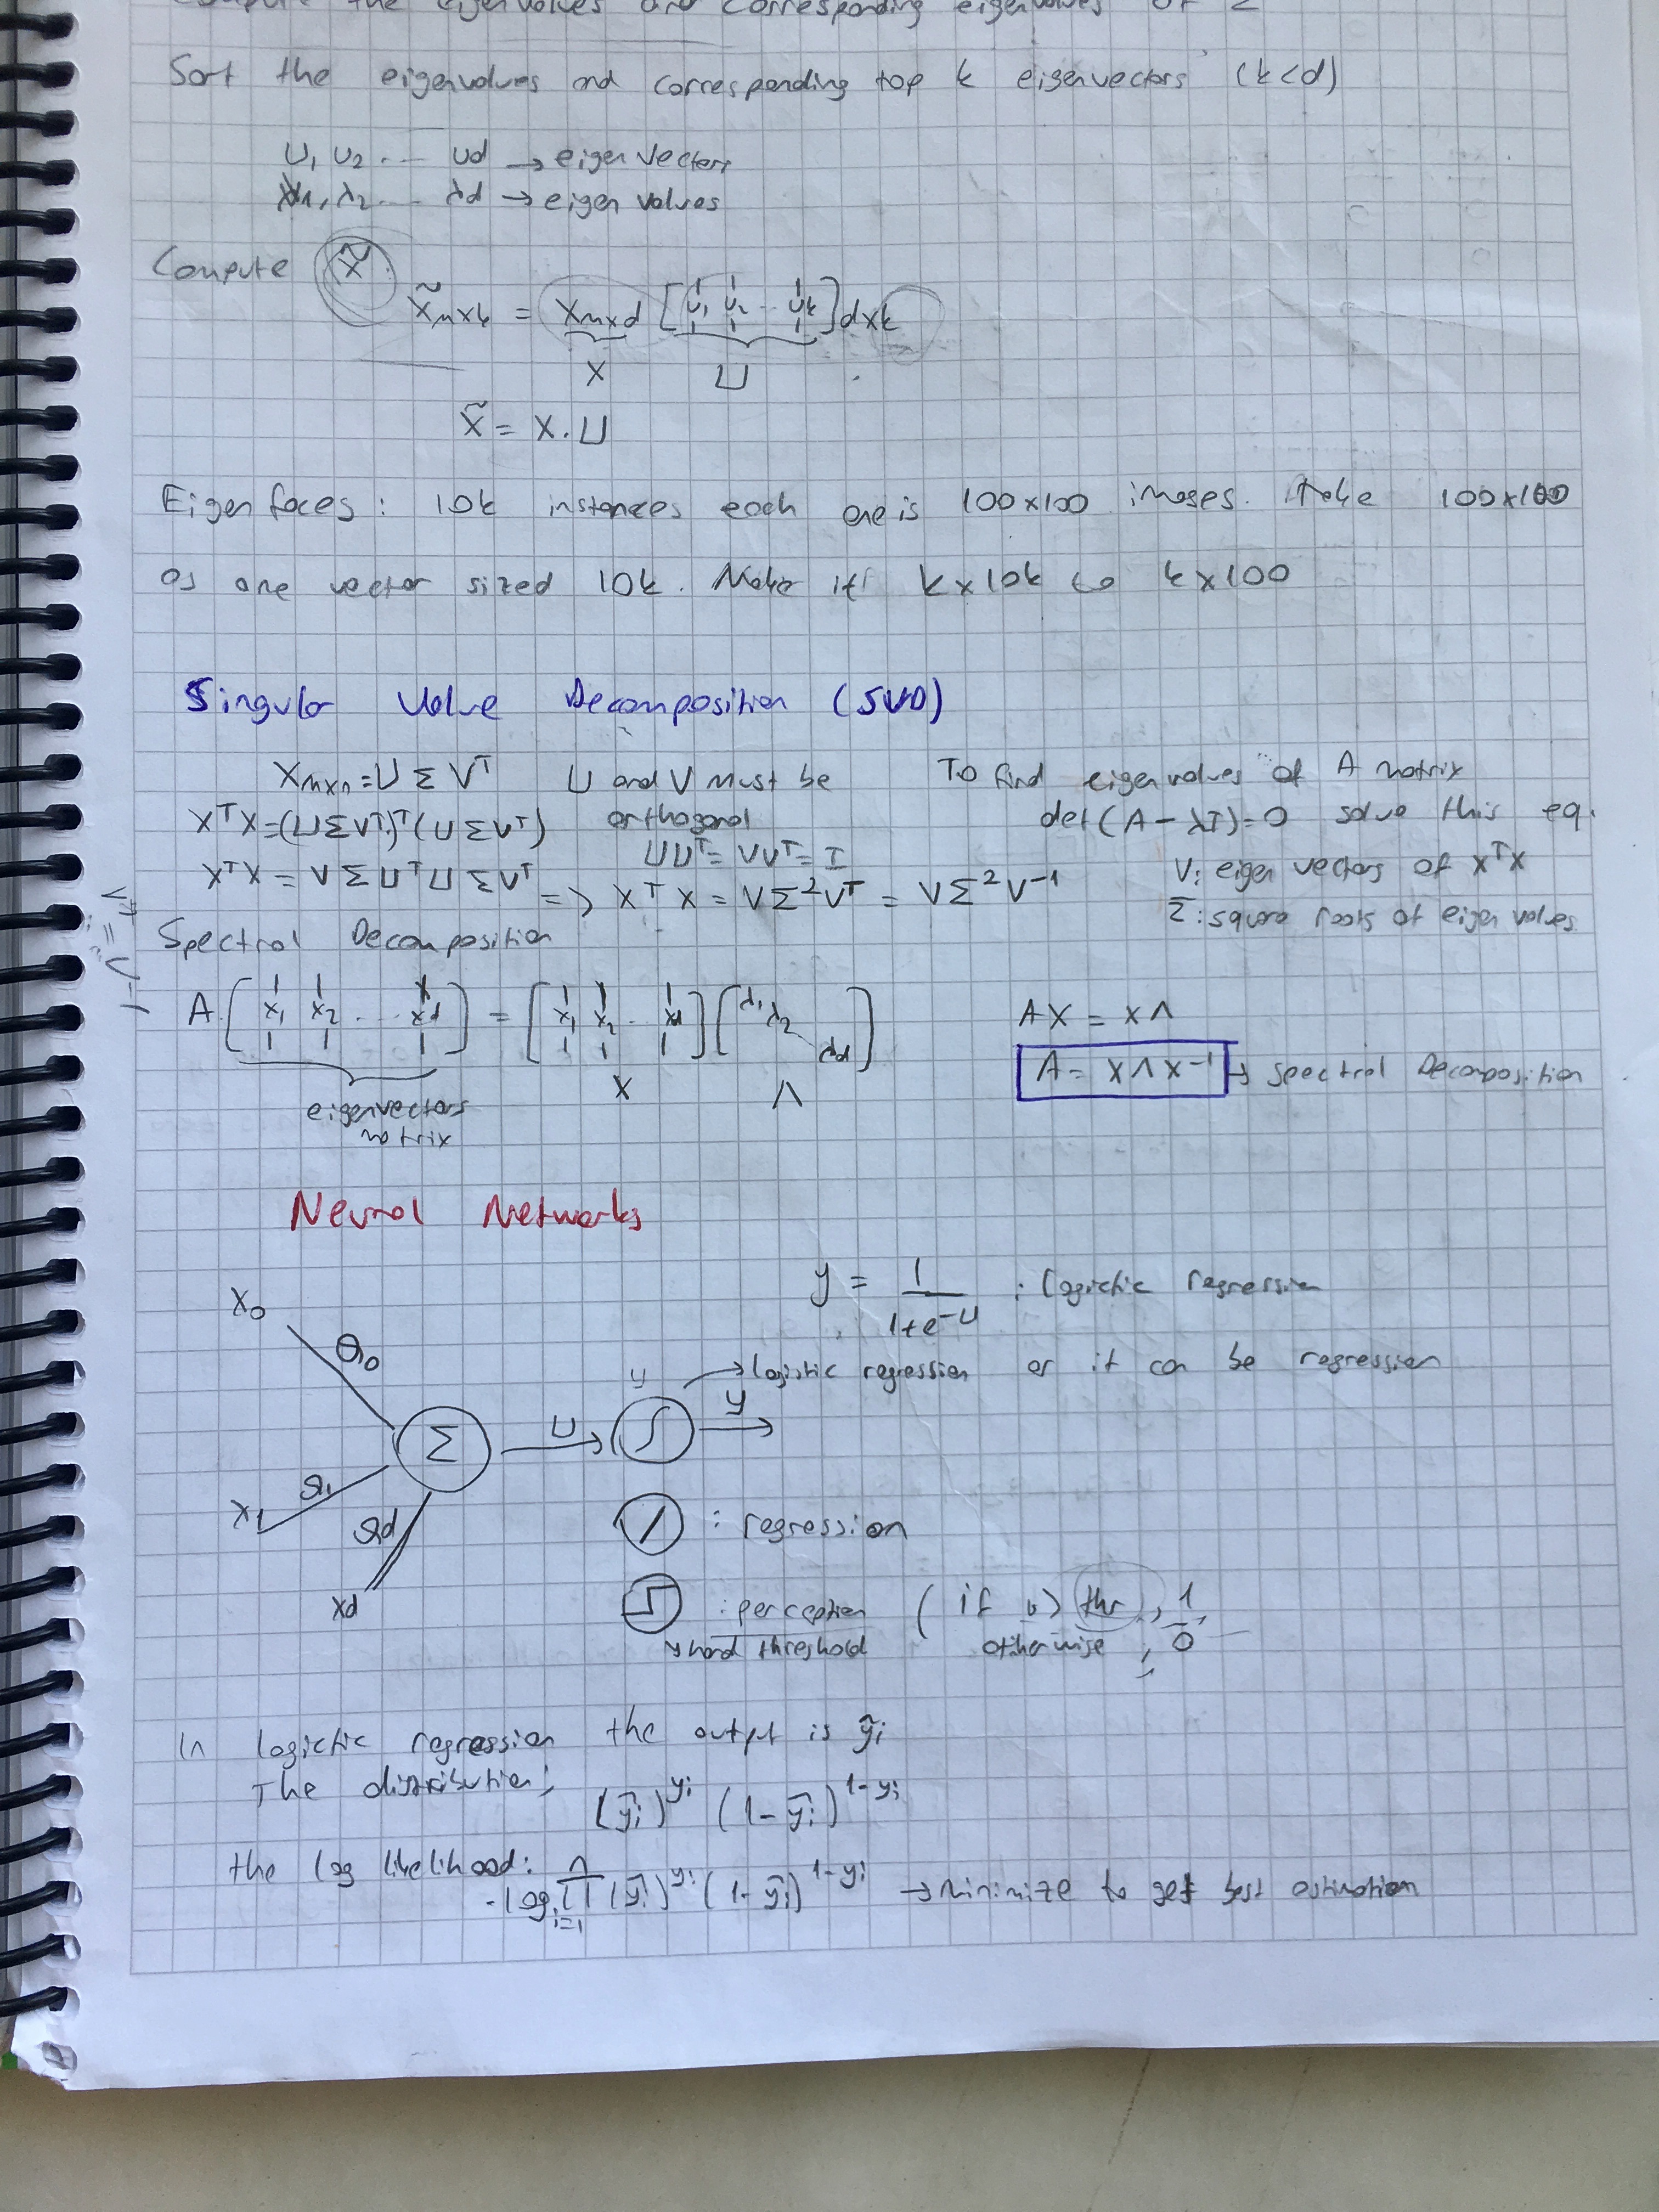 Compute the eigenvalues and corresponding eigenvalues of Σ
Sort the eigenvalues and corresponding top k eigenvectors (k<d)
U₁ U₂ ... Ud → eigen vectors
λ₁, λ₂ ... λd → eigen values
Compute X̃
X̃ₙₓₖ = Xₙₓd [U₁ U₂ ... Uk] dxk
X U
X̃ = X.U
Eigenfaces: 10k instances each one is 100x100 images. Take 100x100
as one vector sized 10k. Make it kx10k to kx100
Singular Value Decomposition (SVD)
Xₘₓₙ = U Σ Vᵀ U and V must be orthogonal
XᵀX = (UΣVᵀ)ᵀ(UΣVᵀ)
UUᵀ = VVᵀ = I
XᵀX = VΣUᵀUΣVᵀ => XᵀX = VΣ²Vᵀ = VΣ²V⁻¹
Vᵀ = V⁻¹
To find eigenvalues of A matrix
det(A - λI) = 0 solve this eq.
V: eigen vectors of XᵀX
Σ: square roots of eigen values
Spectral Decomposition
A [x₁ x₂ ... xd] = [x₁ x₂ ... xd] [λ₁ λ₂ λd]
eigenvectors
matrix
X Λ
AX = XΛ
A = XΛX⁻¹ → Spectral Decomposition
Neural Networks
y = 1/(1+e^-U) : logictic regression
→ logistic regression or it can be regression
X₀ θ₀
X₁ θ₁
Xd θd
Σ U y
: regression
: perception (if u> thr, 1
↘ hard threshold otherwise, 0
In logictic regression the output is ỹᵢ
The distribution;
(ỹᵢ)^yᵢ (1-ỹᵢ)^1-yᵢ
the log likelihood:
-log ∏ⁿᵢ₌₁ (ỹᵢ)^yᵢ (1-ỹᵢ)^1-yᵢ → minimize to get best estimation